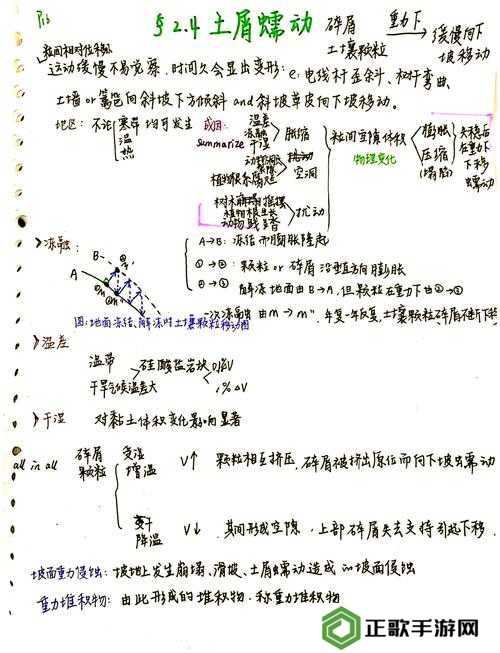 P15
§2.4 土屑蠕动 碎屑 土壤颗粒 重力下 缓慢向下坡移动
颗粒间相对位移
运动缓慢不易觉察,时间久会显出变形:e:电线杆歪斜、树干弯曲
土墙or篱笆向斜坡下方倾斜and斜坡草皮向下坡移动。
地区:不论寒 温 热 均可发生
成因: summarize
温差 冻融 干湿 胀缩
动物 植物根系腐烂 空洞
树木 摇摆 植物根生长 动物践踏 扰动
粒间空隙体积 物理变化
膨胀 压缩 (塌陷)
失稳后在重力下下移蠕动
>冻融:
A B
A→B:冻结而膨胀隆起
①→②:颗粒or碎屑沿垂直方向膨胀
②→③ 解冻地面由B→A,但颗粒在重力下由②→③
一次冻融由m→m",年复一年反复,土壤颗粒碎屑不断下移
图:地面冻结、解冻时土壤颗粒移动图
>温差
温带 硅酸盐岩块
干旱气候温差大 1%ΔV
>干湿 对黏土体积变化影响显著
all in all 碎屑 颗粒
受湿 增温 V↑ 颗粒相互挤压,碎屑被挤出原位而向下坡蠕动
变干 降温 V↓ 其间形成空隙,上部碎屑失去支持引起下移.
坡面重力侵蚀:坡地上发生崩塌、滑坡、土屑蠕动造成的坡面侵蚀
重力堆积物:由此形成的堆积物.称重力堆积物
正歌手游网